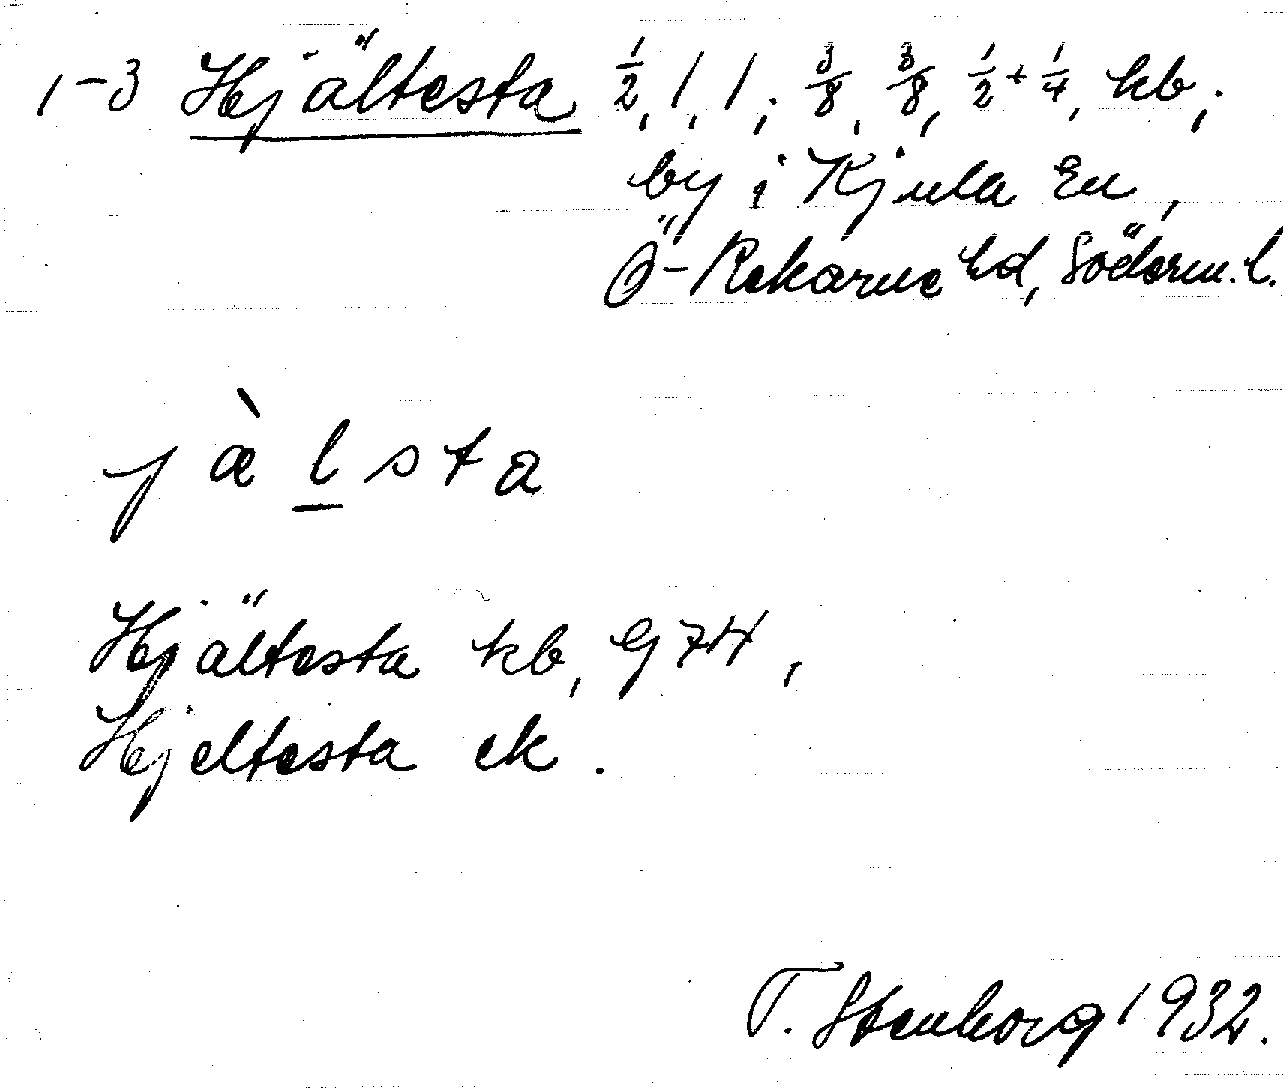 1-3 Hjältesta 1/2, 1, 1; 3/8, 3/8, 1/2+1/4, kb;
by i Kjula sn,
Ö-Rekarne hd, Söderm. l.
jæ̀lsta
Hjältesta kb, G 74,
Hjeltesta ek.
T. Stenborg 1932.